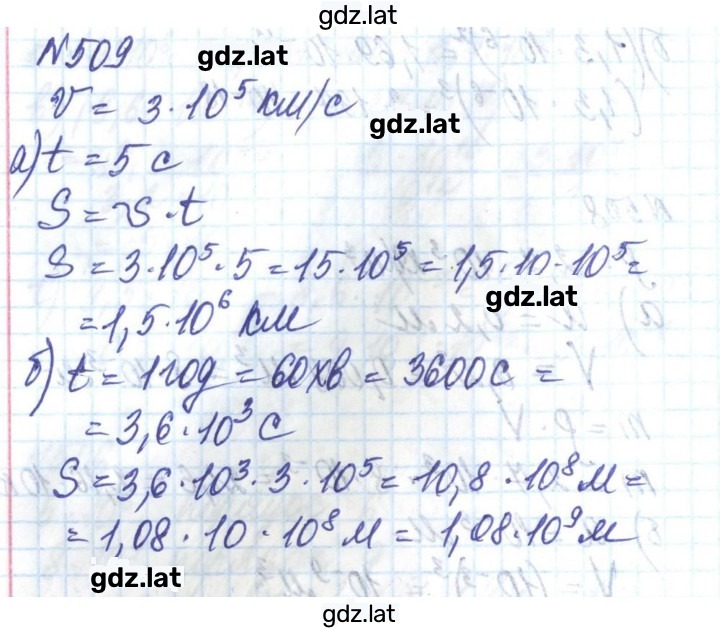 gdz.lat
N509
gdz.lat
V = 3·10⁵ км/с
gdz.lat
а) t = 5 с
S = v·t
S = 3·10⁵·5 = 15·10⁵ = 1,5·10·10⁵ =
gdz.lat
= 1,5·10⁶ км
б) t = 1 год = 60хв = 3600с =
= 3,6·10³ с
S = 3,6·10³·3·10⁵ = 10,8·10⁸ м =
= 1,08·10·10⁸ м = 1,08·10⁹ м
gdz.lat
gdz.lat